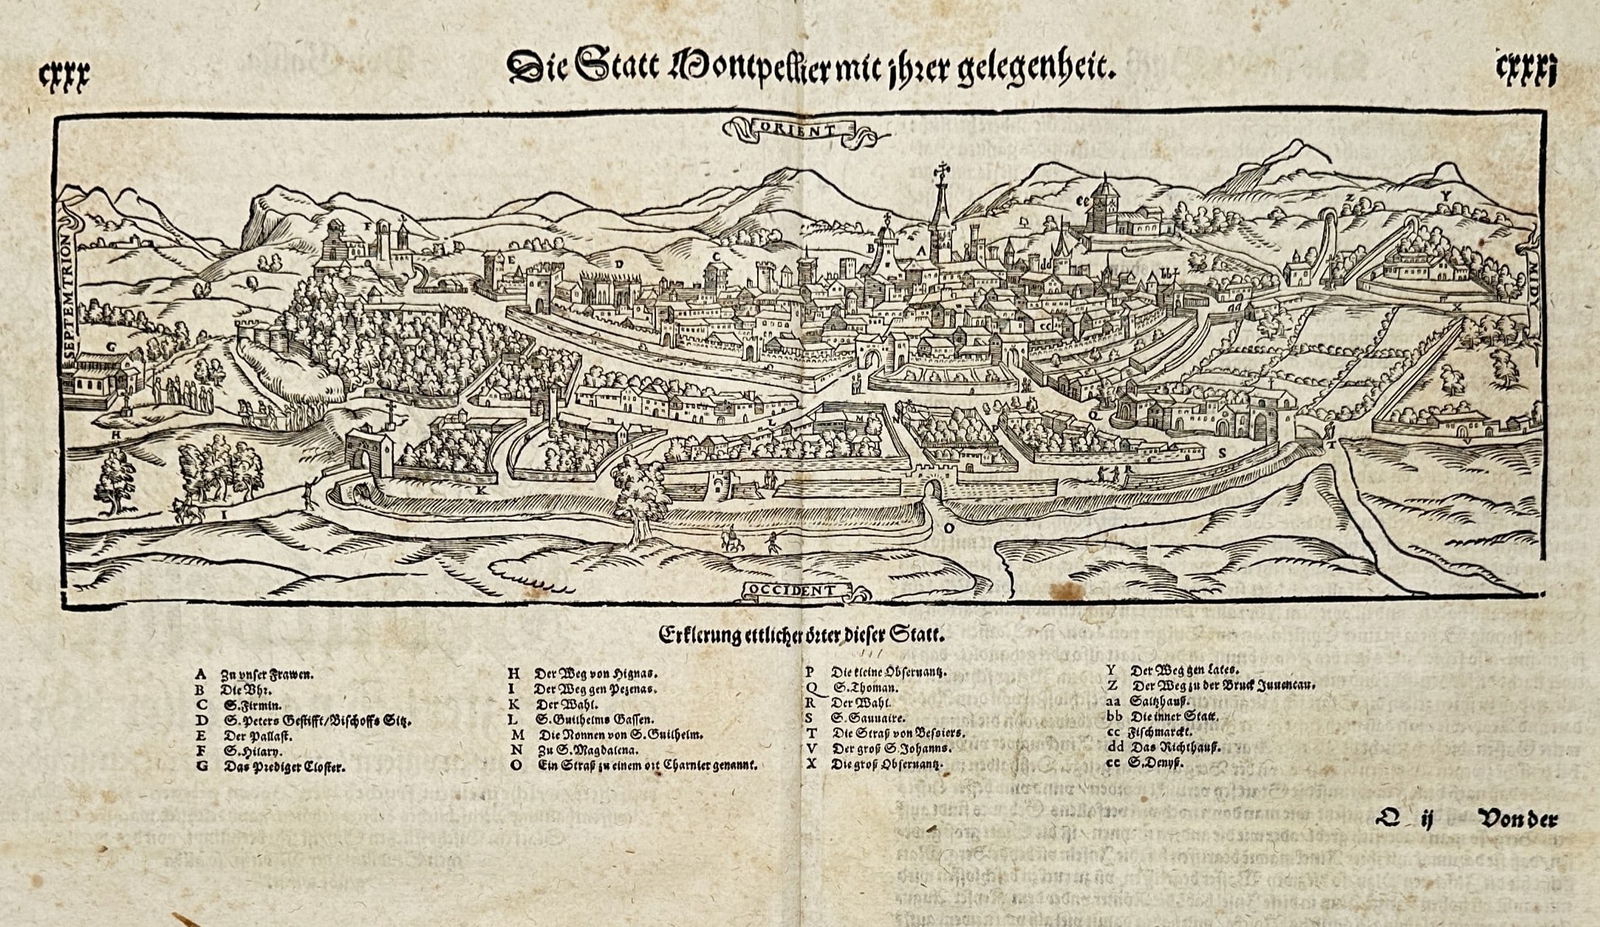 cxxx
Die Statt Montpellier mit jhrer gelegenheit.
cxxxj
ORIENT
SEPTEMTRION
MIDI
OCCIDENT
Erklerung ettlicher örter dieser Statt.
A Zu vnser Frawen.
B Die Vhr.
C S. Firmin.
D S. Peters Gestifft/Bischoffs Sitz.
E Der Pallast.
F S. Hilary.
G Das Prediger Closter.
H Der Weg von Hignas.
I Der Weg gen Pezenas.
K Der Wahl.
L S. Guilhelms Gassen.
M Die Nonnen von S. Guilhelm.
N Zu S. Magdalena.
O Ein Straß zu einem ort Charnier genannt.
P Die kleine Obseruantz.
Q S. Thoman.
R Der Wahl.
S S. Sauuaire.
T Die Straß von Besiers.
V Der groß S. Johanns.
X Die groß Obseruantz.
Y Der Weg gen Lates.
Z Der Weg zu der Bruck Juuencau.
aa Saltzhauß.
bb Die inner Statt.
cc Fischmarckt.
dd Das Richthauß.
ee S. Denyß.
Q ij Von der